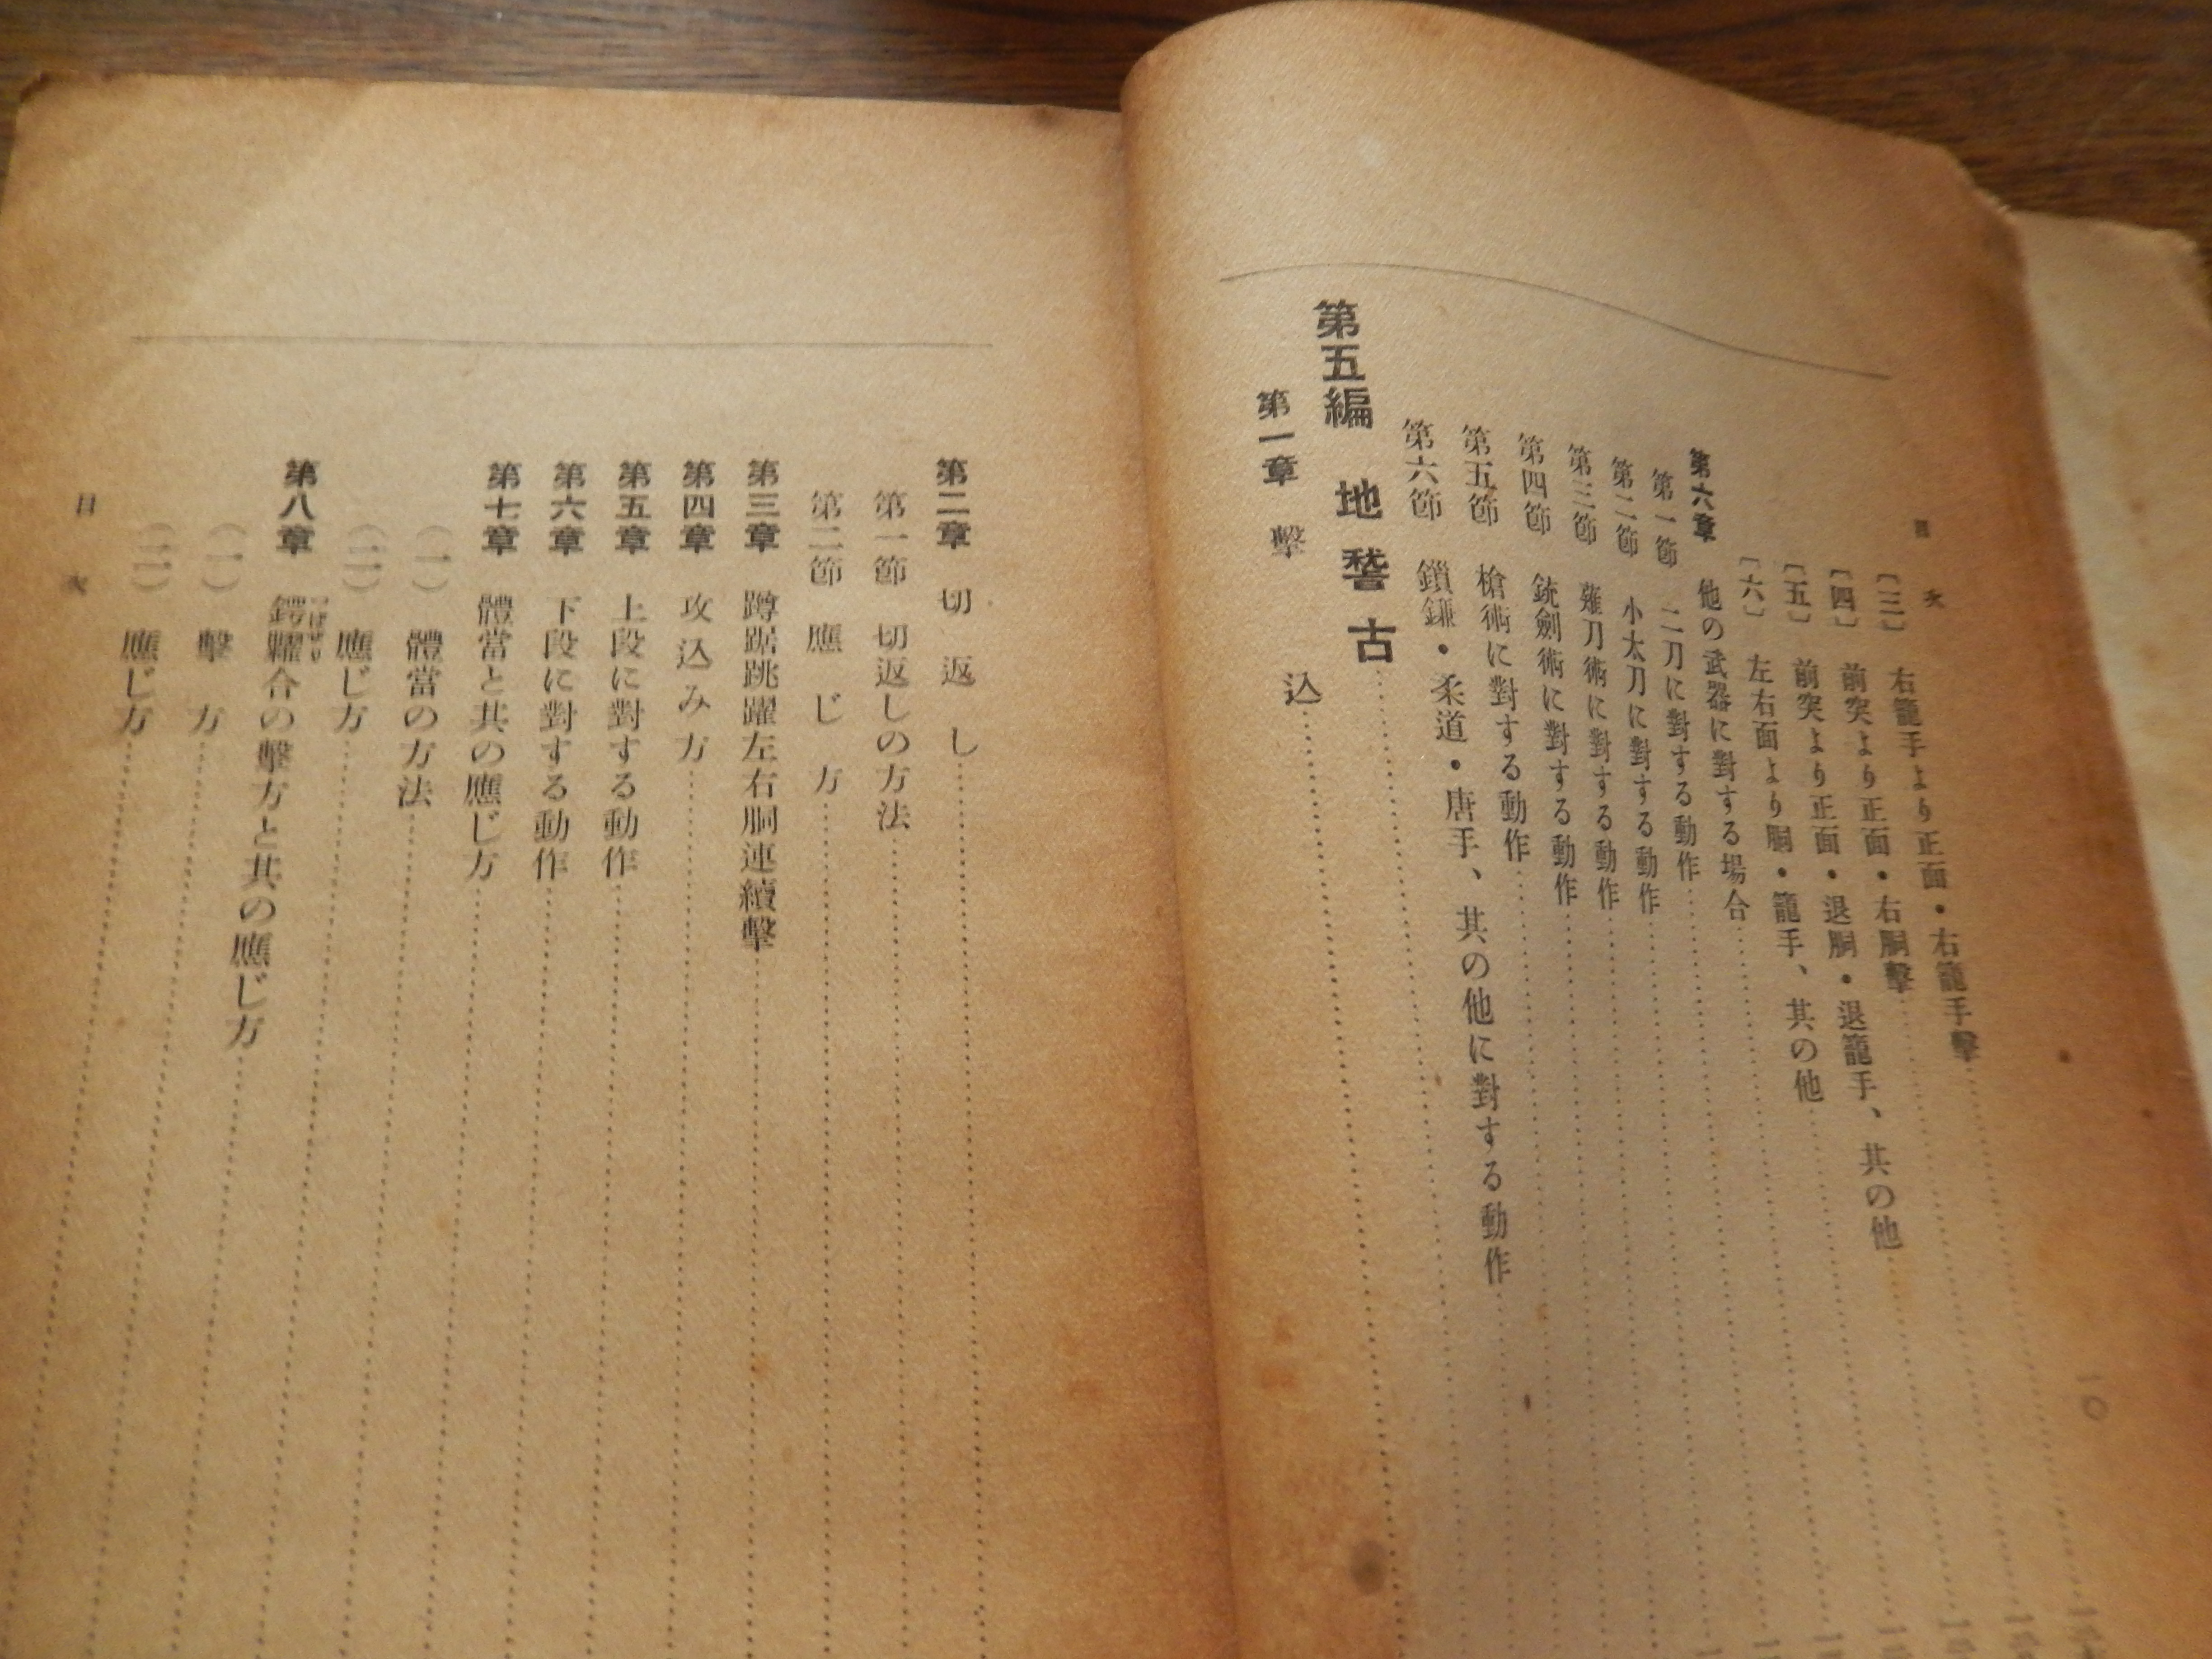 目次
一〇
〔三〕 右籠手より正面・右籠手擊
〔四〕 前突より正面・右胴擊
〔五〕 前突より正面・退胴・退籠手、其の他
〔六〕 左右面より胴・籠手、其の他
第六章 他の武器に對する場合
第一節 二刀に對する動作
第二節 小太刀に對する動作
第三節 薙刀術に對する動作
第四節 銃劍術に對する動作
第五節 槍術に對する動作
第六節 鎖鎌・柔道・唐手、其の他に對する動作
第五編 地稽古
第一章 擊込
第二章 切返し
第一節 切返しの方法
第二節 應じ方
第三章 蹲踞跳躍左右胴連續擊
第四章 攻込み方
第五章 上段に對する動作
第六章 下段に對する動作
第七章 體當と其の應じ方
(一) 體當の方法
(二) 應じ方
第八章 鍔糶合の擊方と其の應じ方
(一) 擊方
(二) 應じ方
目次